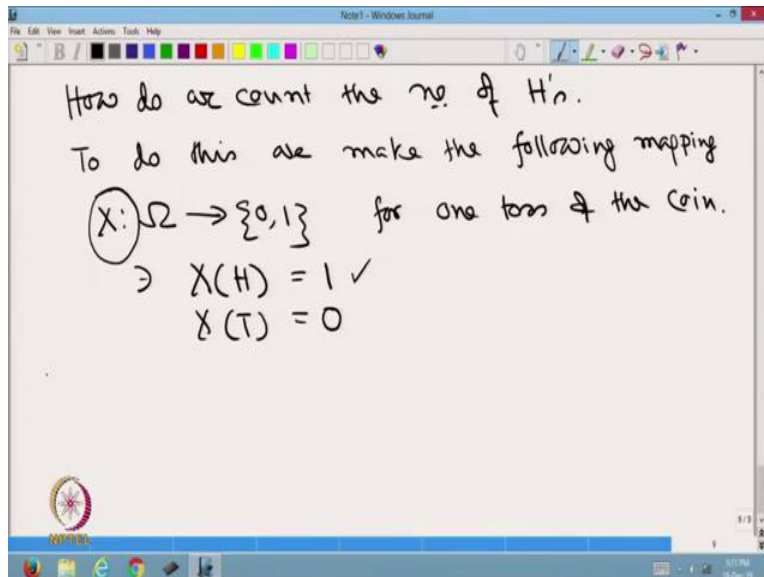 Note1 - Windows Journal
File Edit View Insert Actions Tools Help
How do we count the no. of H's.
To do this we make the following mapping
X: Ω → {0,1} for one toss of the coin.
∋ X(H) = 1 ✓
X(T) = 0
NPTEL